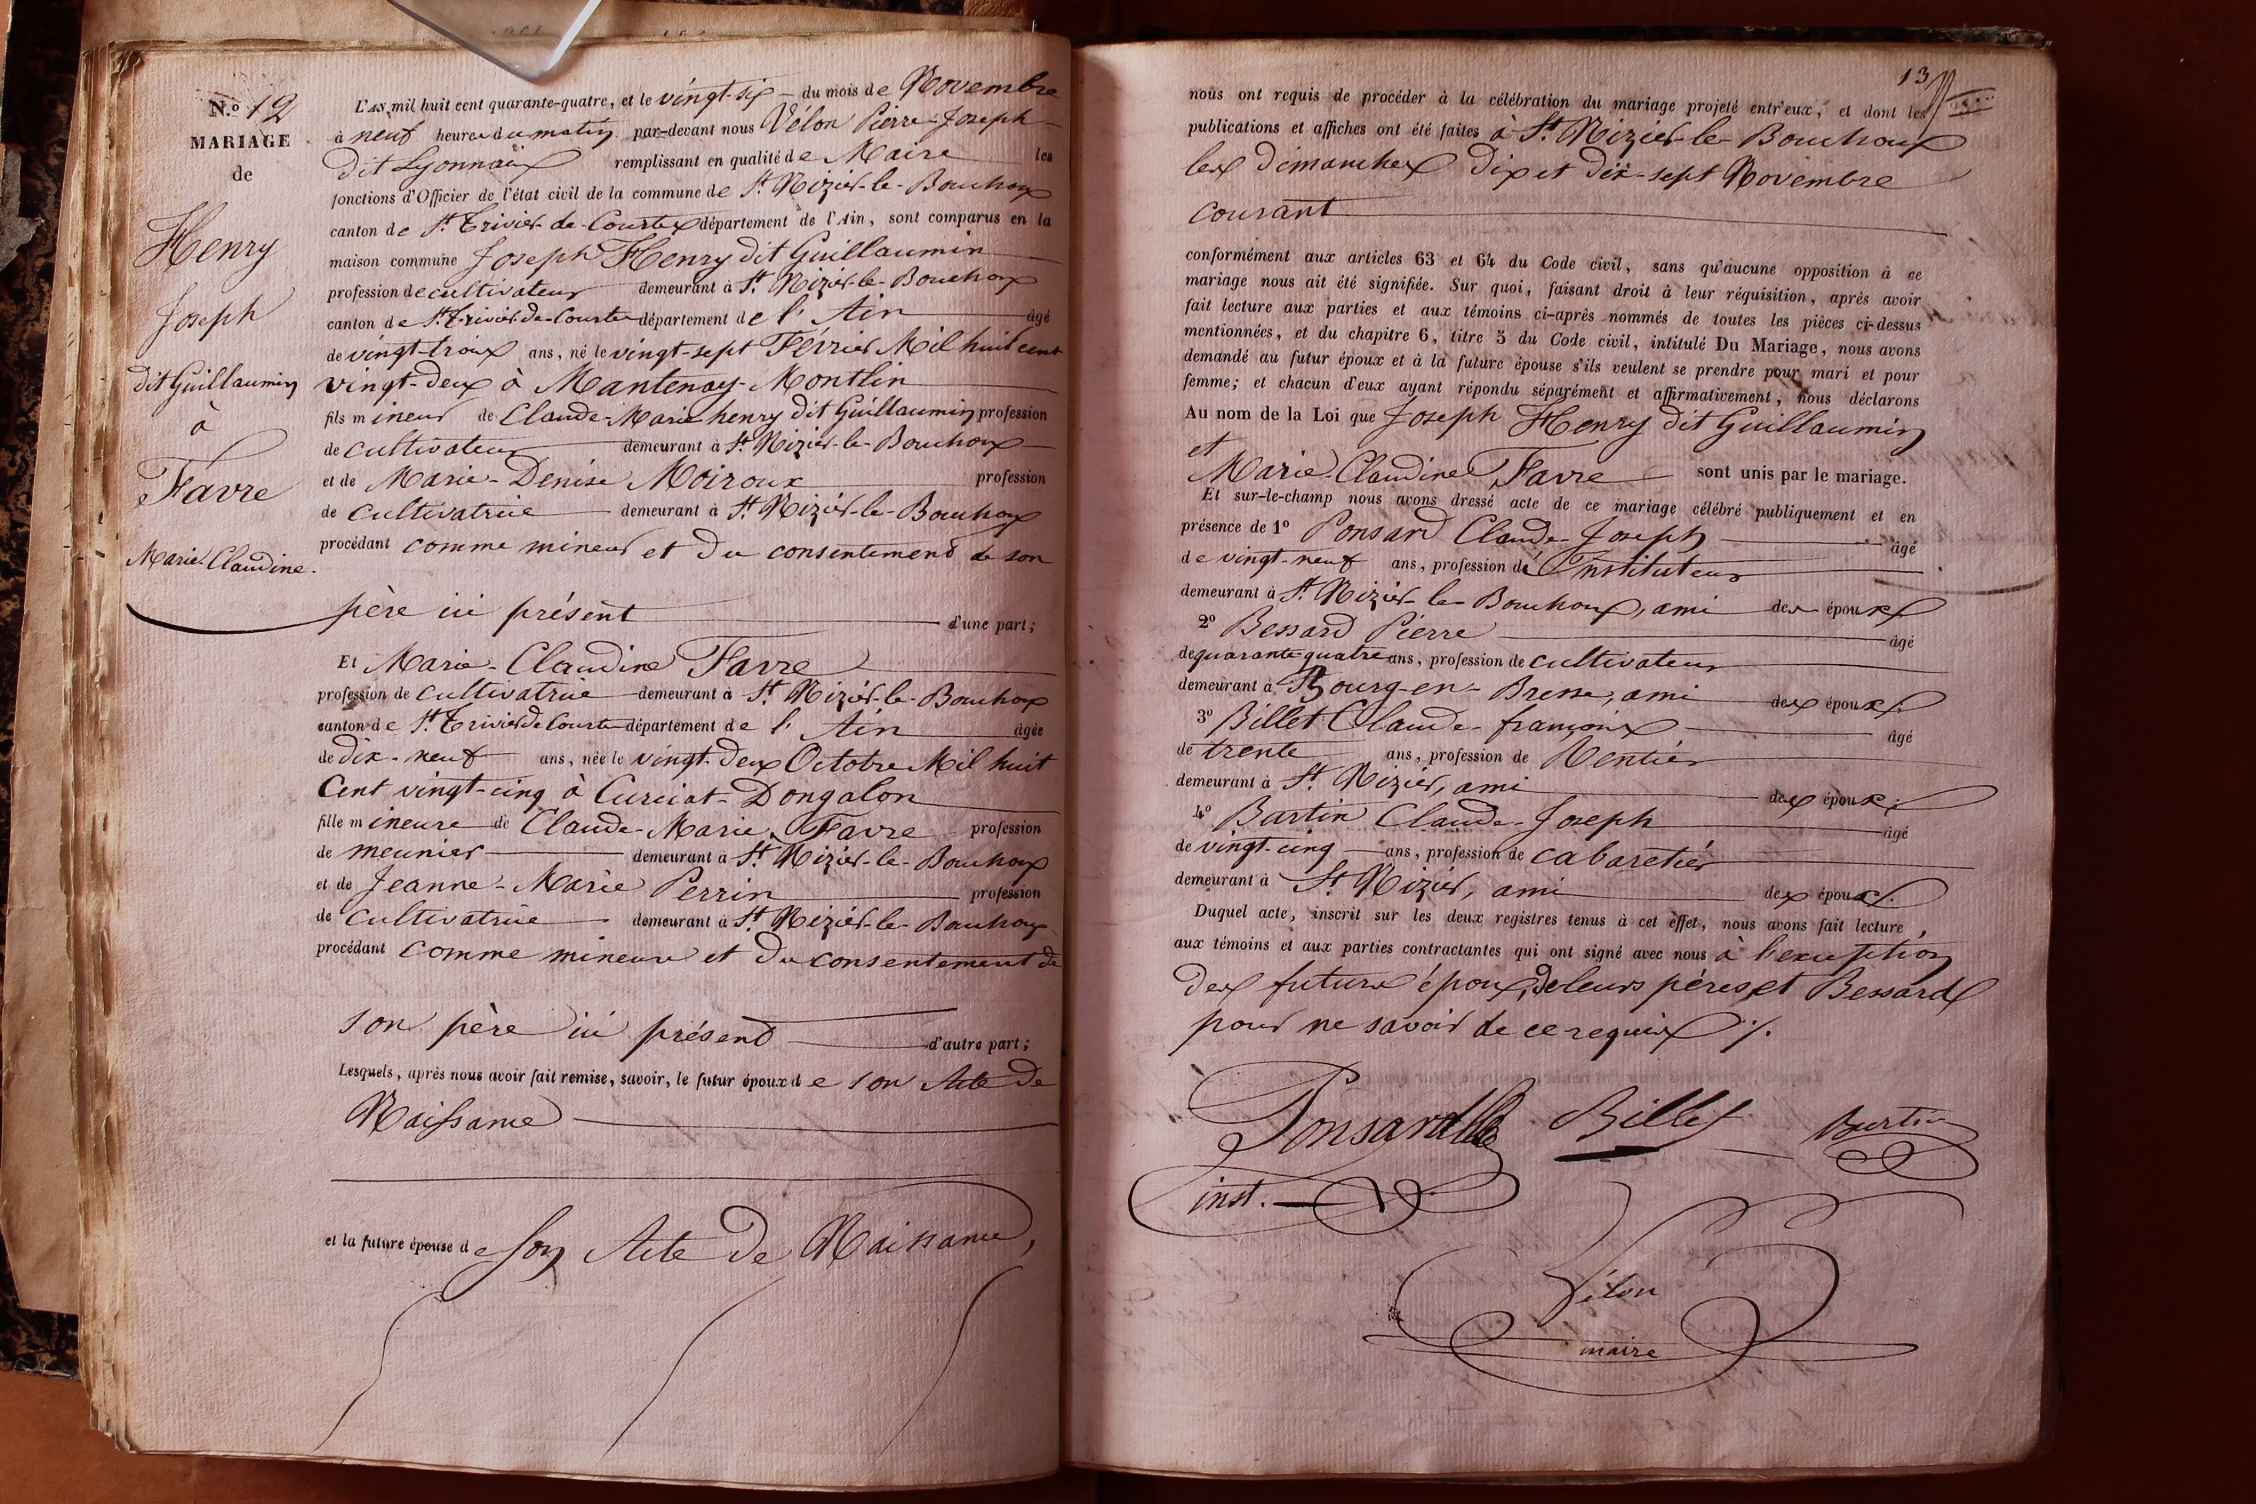 N.o 12
MARIAGE
de
Henry
Joseph
dit Guillaumin
à
Favre
Marie-Claudine.
L'AN mil huit cent quarante-quatre, et le vingt-six du mois de Novembre
à neuf heures du matin par-devant nous Vélon Pierre-Joseph
dit Lyonnais remplissant en qualité de Maire les
fonctions d'Officier de l'état civil de la commune de St Nizier-le-Bouchoux
canton de St Trivier-de-Courtes département de l'Ain, sont comparus en la
maison commune Joseph Henry dit Guillaumin
profession de cultivateur demeurant à St Nizier-le-Bouchoux
canton de St Trivier-de-Courtes département de l'Ain âgé
de vingt-trois ans, né le vingt-sept Février Mil huit cent
vingt-deux à Mantenay-Montlin
fils mineur de Claude-Marie henry dit Guillaumin profession
de cultivateur demeurant à St Nizier-le-Bouchoux
et de Marie-Denise Moiroux profession
de cultivatrice demeurant à St Nizier-le-Bouchoux
procédant comme mineur et du consentement de son
père ici présent d'une part;
Et Marie-Claudine Favre
profession de cultivatrice demeurant à St Nizier-le-Bouchoux
canton de St Trivier de Courtes département de l'Ain âgée
de dix-neuf ans, née le vingt-deux Octobre Mil huit
Cent vingt-cinq à Curciat-Dongalon
fille mineure de Claude-Marie Favre profession
de meunier demeurant à St Nizier-le-Bouchoux
et de Jeanne-Marie Perrin profession
de cultivatrice demeurant à St Nizier-le-Bouchoux
procédant comme mineure et du consentement de
son père ici présent d'autre part;
Lesquels, après nous avoir fait remise, savoir, le futur époux de son Acte de
Naissance
et la future épouse de son Acte de Naissance,
13
nous ont requis de procéder à la célébration du mariage projeté entr'eux, et dont les
publications et affiches ont été faites à St Nizier-le-Bouchoux
les dimanches dix et dix-sept Novembre
courant
conformément aux articles 63 et 64 du Code civil, sans qu'aucune opposition à ce
mariage nous ait été signifiée. Sur quoi, faisant droit à leur réquisition, après avoir
fait lecture aux parties et aux témoins ci-après nommés de toutes les pièces ci-dessus
mentionnées, et du chapitre 6, titre 5 du Code civil, intitulé Du Mariage, nous avons
demandé au futur époux et à la future épouse s'ils veulent se prendre pour mari et pour
femme; et chacun d'eux ayant répondu séparément et affirmativement, nous déclarons
Au nom de la Loi que Joseph Henry dit Guillaumin
et
Marie-Claudine Favre sont unis par le mariage.
Et sur-le-champ nous avons dressé acte de ce mariage célébré publiquement et en
présence de 1o Ponsard Claude-Joseph âgé
de vingt-neuf ans, profession d'Instituteur
demeurant à St Nizier-le-Bouchoux, ami des époux
2o Bessard Pierre âgé
de quarante-quatre ans, profession de cultivateur
demeurant à Bourg-en-Bresse, ami des époux;
3o Billet Claude-françois âgé
de trente ans, profession de Rentier
demeurant à St Nizier, ami des époux;
4o Bartin Claude-Joseph âgé
de vingt-cinq ans, profession de cabaretier
demeurant à St Nizier, ami des époux.
Duquel acte, inscrit sur les deux registres tenus à cet effet, nous avons fait lecture
aux témoins et aux parties contractantes qui ont signé avec nous à l'exception
des futurs époux, de leurs pères, et Bessard
pour ne savoir de ce requis ./.
Ponsard Billet Burtin
inst.
Vélon
maire